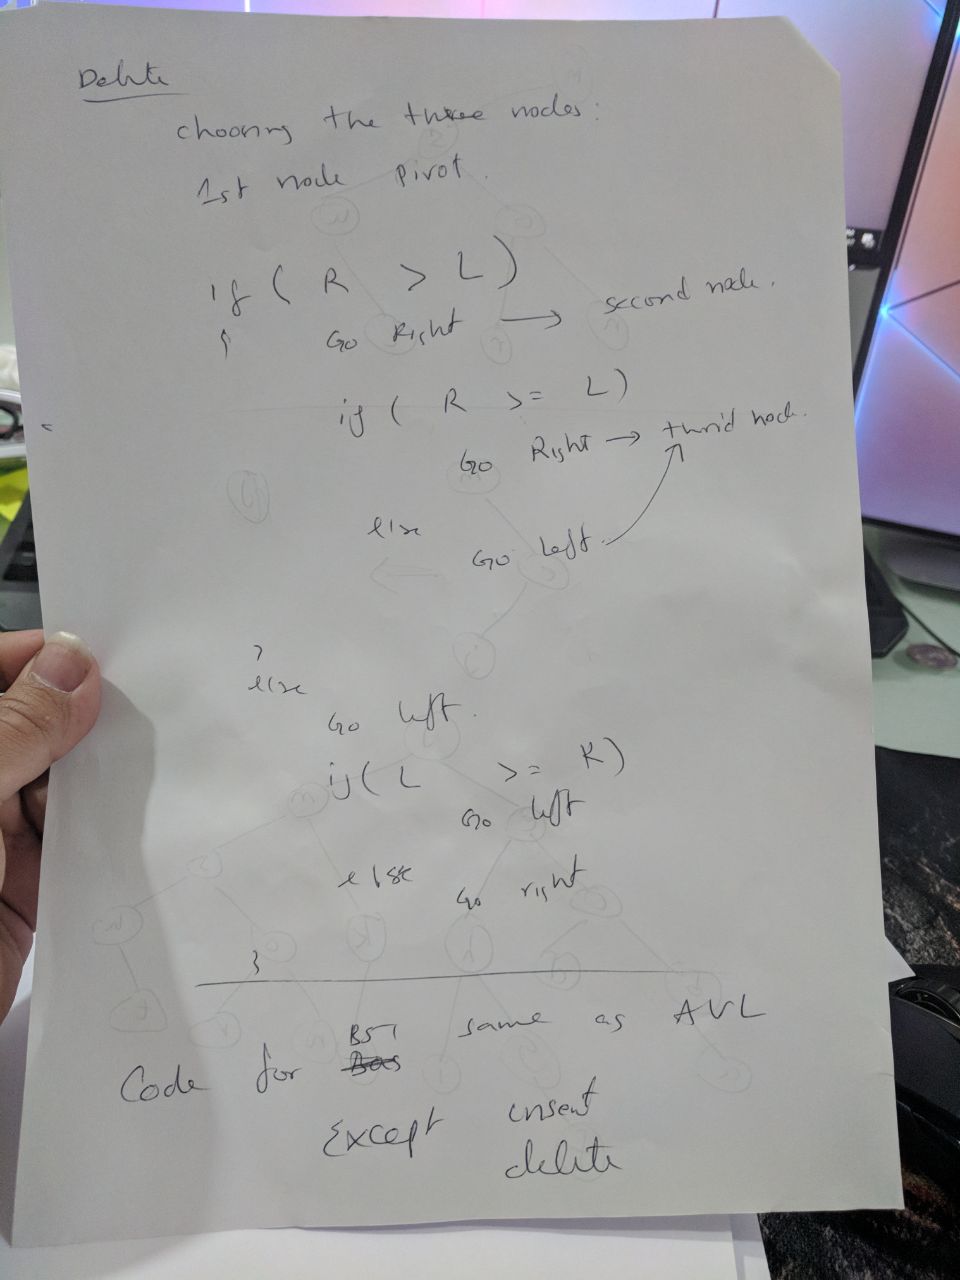 Delete
choosing the three nodes:
1st node pivot.
if ( R > L )
{ Go Right → second node.
if ( R >= L )
Go Right → thrid node.
else
Go left.
}
else
Go left.
if( L >= R )
Go left
else
Go right
}
Code for BST same as AVL
Except insert
delete